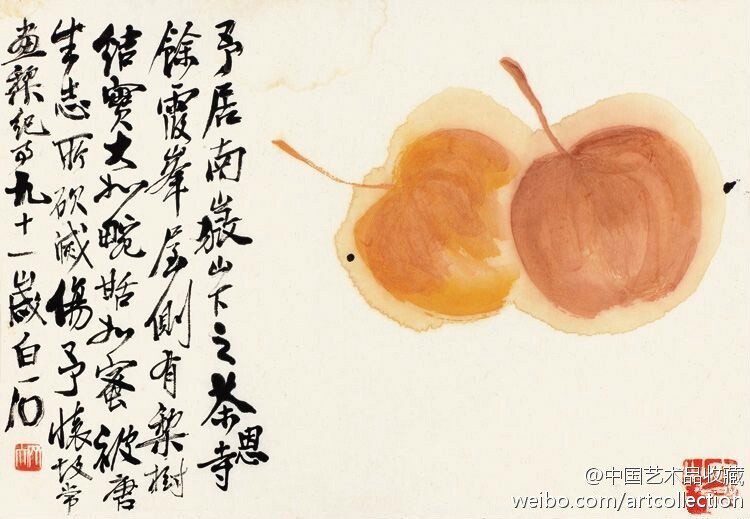 予居南嶽山下之茶恩寺
餘霞峯屋側有棃樹
結實大如碗甜如蜜被唐
生志所砍滅傷予懷故常
畫棃紀事九十一歲白石
@中国艺术品收藏
weibo.com/artcollection